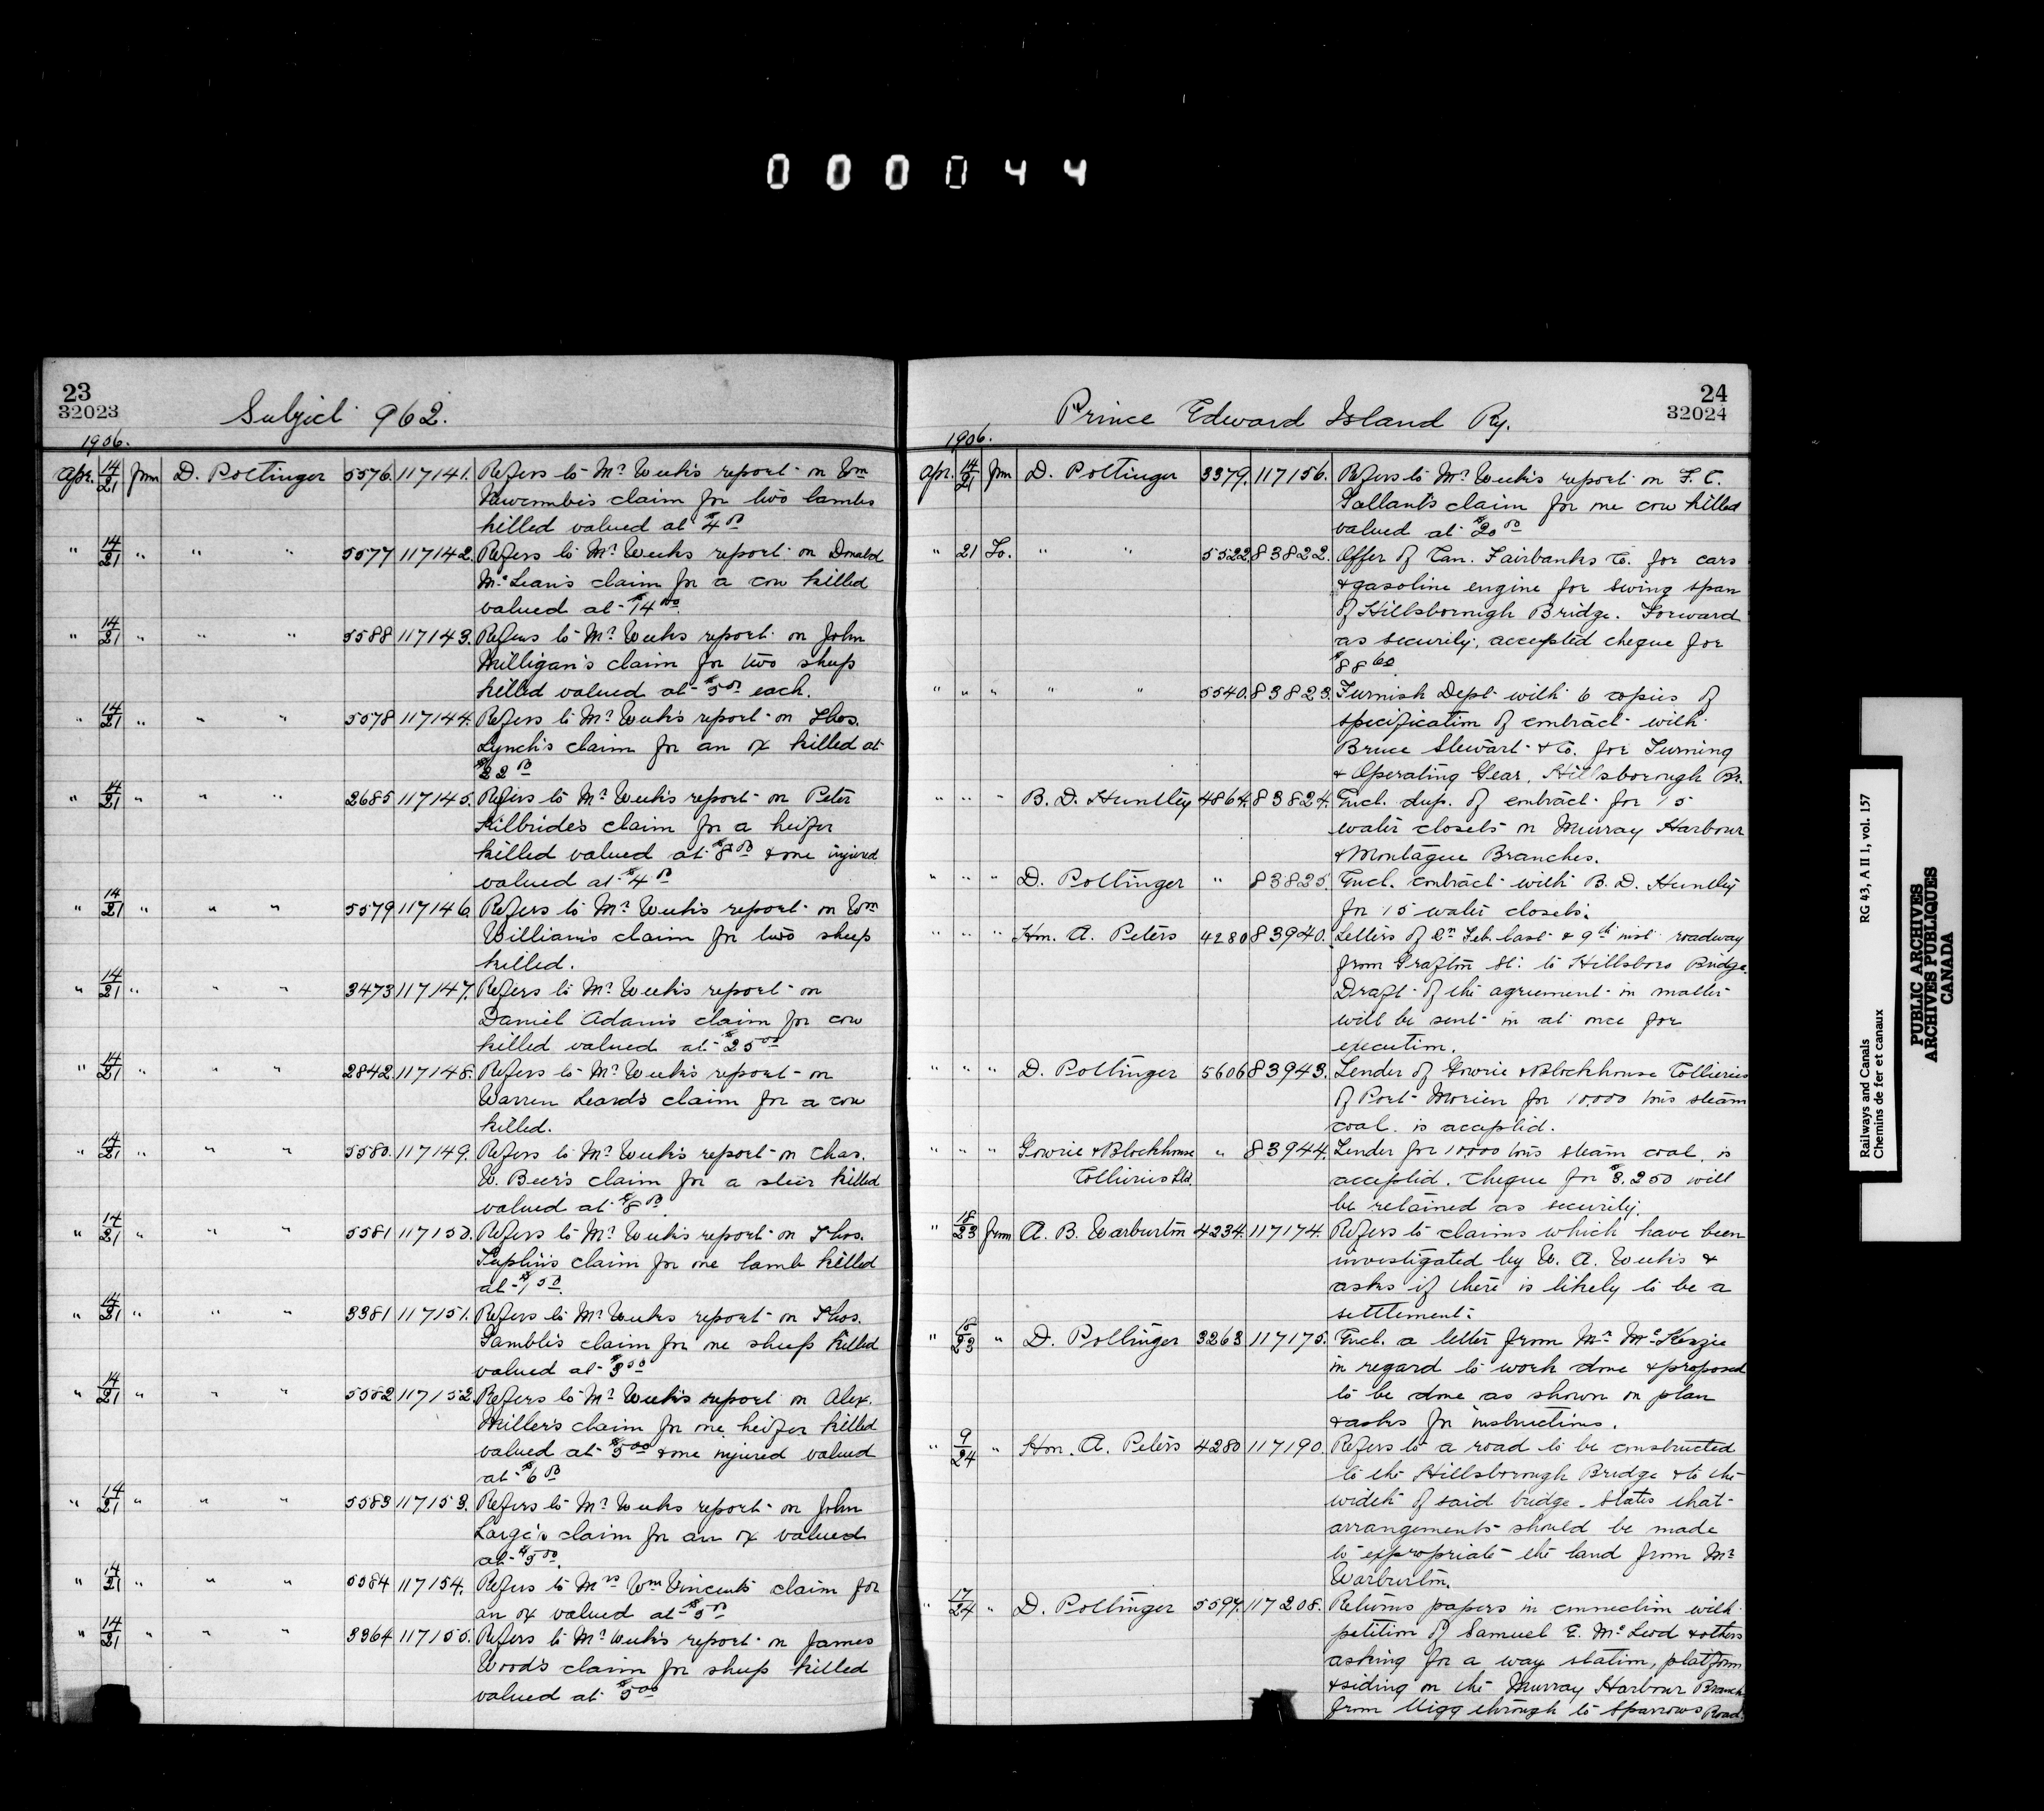 000044
23
32023
Subject 962.
1906.
Apr. 14/21 from D. Pottinger 5576. 117141. Refers to Mr Weeks report on Wm
Newcombe's claim for two lambs
killed valued at $4 00
" 14/21 " " " 5577 117142. Refers to Mr Weeks report on Donald
McLean's claim for a cow killed
valued at $14 00.
" 14/21 " " " 5588 117143. Refers to Mr Weeks report on John
Milligan's claim for two sheep
killed valued at $5 00 each.
" 14/21 " " " 5578 117144. Refers to Mr Weeks report on Thos.
Lynch's claim for an ox killed at
$22 00
" 14/21 " " " 2685 117145. Refers to Mr Weeks report on Peter
Kilbride's claim for a heifer
killed valued at $8 00 & one injured
valued at $4 00
" 14/21 " " " 5579 117146. Refers to Mr Weeks report on Wm
William's claim for two sheep
killed.
" 14/21 " " " 3473 117147. Refers to Mr Weeks report on
Daniel Adams claim for cow
killed valued at $25 00
" 14/21 " " " 2842. 117148. Refers to Mr Weeks report on
Warren Leard's claim for a cow
killed.
" 14/21 " " " 5580. 117149. Refers to Mr Weeks report on Chas.
W. Beer's claim for a steer killed
valued at $8 00.
" 14/21 " " " 5581 117150. Refers to Mr Weeks report on Thos.
Taplin's claim for one lamb killed
at $1 50.
" 14/21 " " " 3381 117151. Refers to Mr Weeks report on Thos.
Gamble's claim for one sheep killed
valued at $3 00
" 14/21 " " " 5582 117152. Refers to Mr Weeks report on Alex.
Miller's claim for one heifer killed
valued at $5 00 & one injured valued
at $6 00
" 14/21 " " " 5583 117153. Refers to Mr Weeks report on John
Large's claim for an ox valued
at $5 00.
" 14/21 " " " 5584 117154. Refers to Mrs Wm Vincent's claim for
an ox valued at $5 00
" 14/21 " " " 3364 117155. Refers to Mr Weeks report on James
Wood's claim for sheep killed
valued at $5 00
24
32024
Prince Edward Island Ry.
1906.
Apr. 14/21 from D. Pottinger 3379. 117156. Refers to Mr Weeks report on F. C.
Gallant's claim for one cow killed
valued at $20 00
" 21 To. " " 5522 83822. Offer of Can. Fairbanks Co. for cars
& gasoline engine for swing span
of Hillsborough Bridge. Forward
as security, accepted cheque for
$88 60
" " " " " 5540. 83823. Furnish Dept with 6 copies of
specification of contract with
Bruce Stewart & Co. for Turning
& Operating Gear, Hillsborough Br.
" " " B. D. Huntley 4864. 83824. Encl. dup. of contract for 15
water closets on Murray Harbour
& Montague Branches.
" " " D. Pottinger " 83825. Encl. contract with B. D. Huntley
for 15 water closets.
" " " Hon. A. Peters 4280 83940. Letters of 2n Feb. last & 9th inst roadway
from Grafton St. to Hillsboro Bridge.
Draft of the agreement in matter
will be sent in at once for
execution.
" " " D. Pottinger 5606 83943. Tender of Gowrie & Blockhouse Collieries
of Port Morien for 10,000 tons steam
coal is accepted.
" " " Gowrie & Blockhouse " 83944. Tender for 10000 tons steam coal is
Collieries Ltd. accepted. Cheque for $3,250 will
be retained as security.
" 18/23 from A. B. Warburton 4234. 117174. Refers to claims which have been
investigated by W. A. Weeks &
asks if there is likely to be a
settlement.
" 15/23 " D. Pottinger 3263 117175. Encl. a letter from Mr McKenzie
in regard to work done & proposed
to be done as shown on plan
& asks for instructions.
" 9/24 " Hon. A. Peters 4280 117190. Refers to a road to be constructed
to the Hillsborough Bridge & to the
width of said bridge. States that
arrangements should be made
to expropriate the land from Mr
Warburton.
" 17/24 " D. Pottinger 5597. 117208. Returns papers in connection with
petition of Samuel E. McLeod & others
asking for a way station, platform
& siding on the Murray Harbour Branch
from Uigg through to Sparrows Road.
Railways and Canals RG 43, A II 1, vol. 157
Chemins de fer et canaux
PUBLIC ARCHIVES
ARCHIVES PUBLIQUES
CANADA